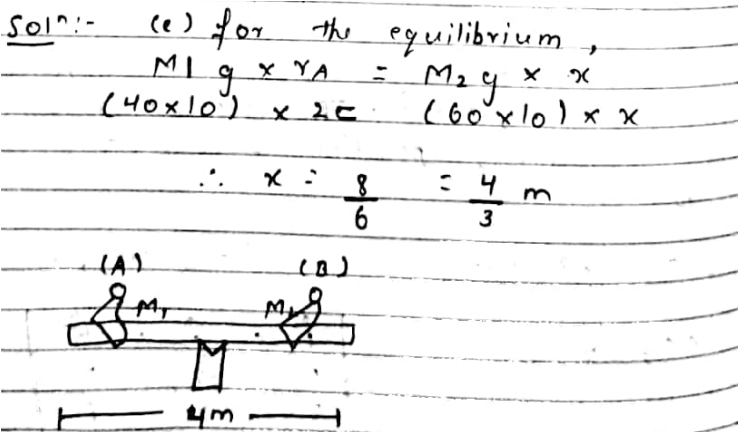 Solⁿ:- (e) for the equilibrium,
M1 g × rA = M2 g × x
(40×10) × 2 = (60×10) × x
∴ x = 8/6 = 4/3 m
(A) (B)
M1 M1
4m